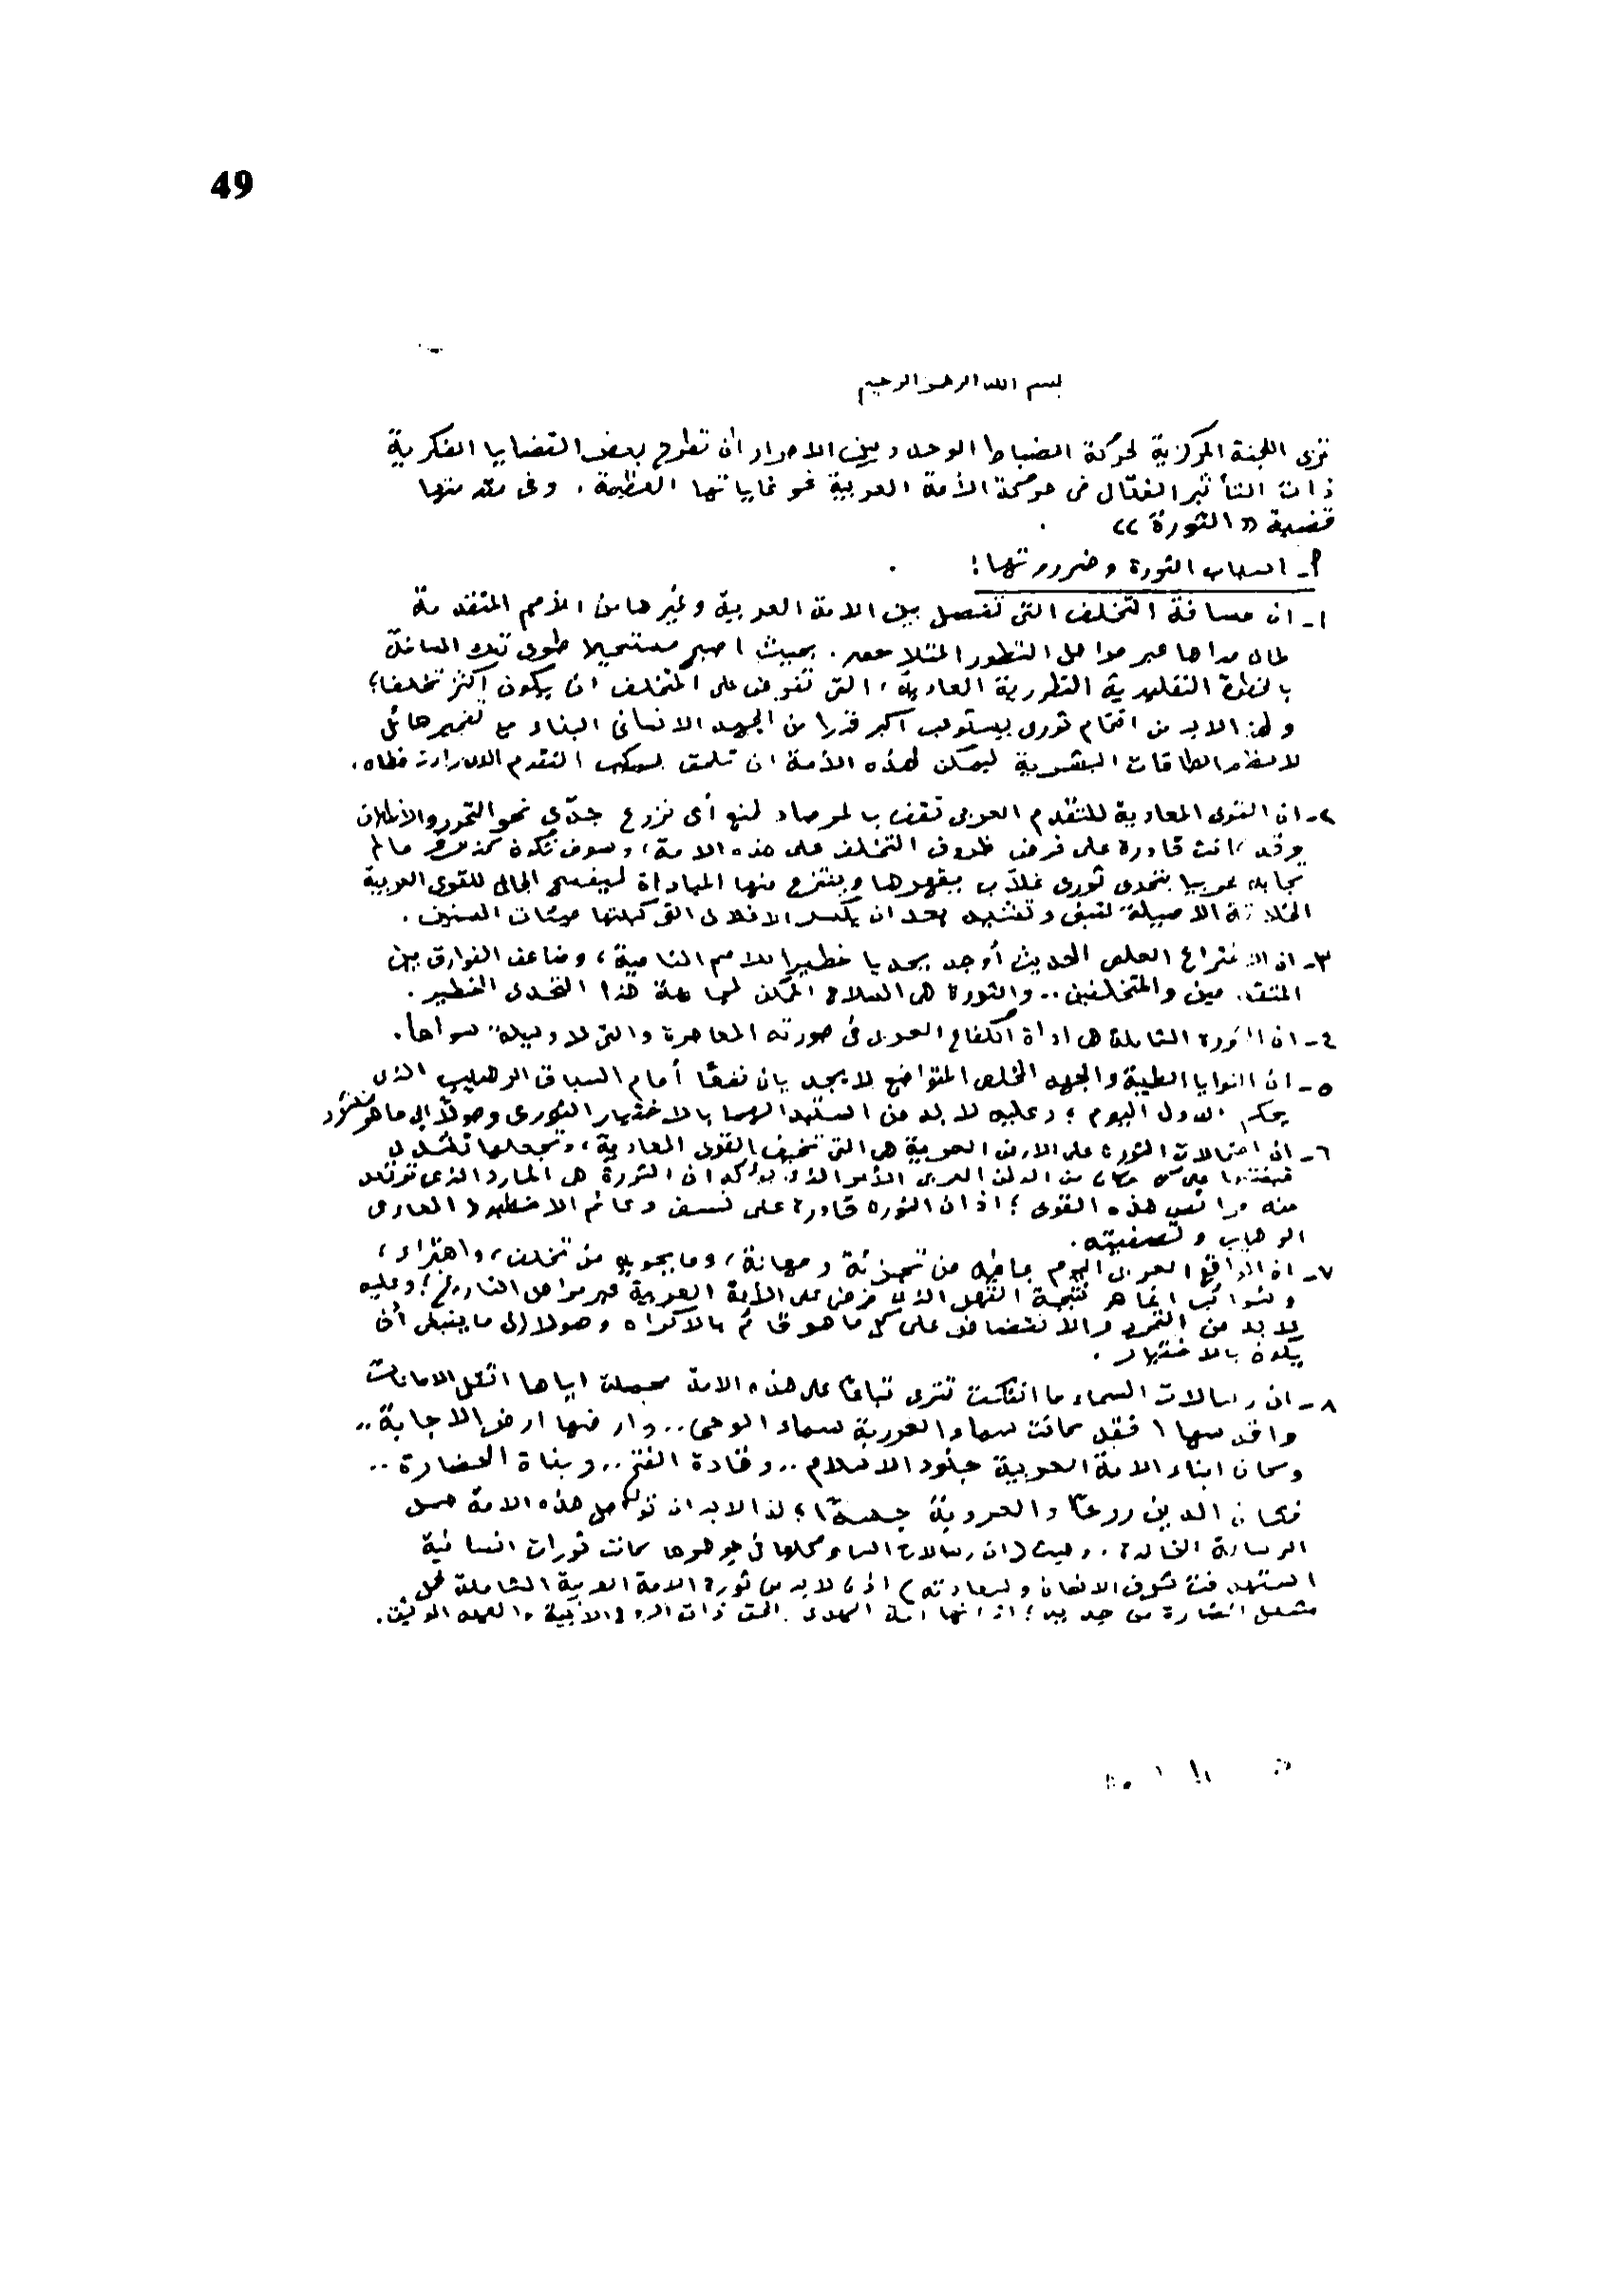 49
بسم الله الرحمن الرحيم
ترى اللجنة المركزية لحركة الضباط الوحدويين الاحرار أن تطرح بعض القضايا الفكرية
ذات التأثير الفعّال في حركة الأمة العربية نحو غاياتها العظيمة . وفى مقدمتها
قضية « الثورة »
أ- اسباب الثورة وضرورتها :
١- ان مسافة التخلف التى تفصل بين الامة العربية وغيرها من الأمم المتقدمة
طال مداها عبر مراحل التطور المتلاحقة . بحيث اصبح مستحيلا طوى تلك المسافة
بالخطوة التقليدية التطورية العادية ، التى تفرض على المتخلف ان يكون اكثر تخلفا ؛
ولهذا لابد من اقتحام ثورى يستوعب اكبر قدرا من الجهد الانسانى البناء مع تفجير هائل
الطاقات البشرية ليمكن لهذه الأمة ان تلحق بموكب التقدم
٢- ان القوى المعادية للتقدم العربى تقف بالمرصاد لمنع أى نزوع جدّي نحو التحرر والانطلاق
وقد كانت قادرة على فرض ظروف التخلف على هذه الامة ، وسوف تكون كذلك مالم
تجابه عربيا بتحدى ثورى غلاّب يقهرها وينتزع منها المباداة ليفسح المجال للقوى العربية
الخلاقة الاصيلة لتبنى وتشيد بعد ان يكسر الاغلال التى كبلتها مئات السنين .
٣- ان الاختراع العلمى الحديث أوجد تحديا خطيرا للامم النامية ، وضاعف الفوارق بين
المتقدمين والمتخلفين .. والثورة هى السلاح الممكن لمجابهة هذا التحدى الخطير .
٤- ان الثورة الشاملة هى اداة الكفاح العربى فى صورته المعاصرة والتى لا وسيلة سواها .
٥- ان النوايا الطيبة والجهد المخلص المتواضع لا يجديان نفعًا أمام السباق الرهيب الذى
يحكم الدول اليوم ؛ وعليه لابد من استبدالهما بالاختيار الثورى وصولاً إلى ما هو منشود
٦- ان احتمالات الثورة على الارض العربية هى التى تخيف القوى المعادية ، وتجعلها
من الوطن العربى الأمر الذى يؤكد ان الثورة هى المارد الذى ترتعد
منه فرائص هذه القوى ؛ اذ ان الثورة قادرة على نسف دعائم الاخطبوط المعادى
الرهيب وتصفيته .
٧- ان الواقع العربى اليوم بما فيه من تجزئة ومهانة ، وما يحويه من تخلف ، واهتراء ،
وشوائب انما هو نتيجة القهر الذى فرض على الأمة العربية عبر مراحل التاريخ ؛ وعليه
لابد من التمرد والانتفضاض على كل ما هو قائم بالاكراه وصولا إلى ما ينبغى أن
يكون بالاختيار .
٨- ان رسالات السماء ما انفكت تترى تباعًا على هذه الامة محملة اياها اثقل الامانات
واقدسها ! فقد كانت سماء العروبة سماء الوحى .. وارضها ارض الاجابة ..
وكان ابناء الامة العربية جنود الاسلام .. وقادة الفتح .. وبناة الحضارة ..
فكان الدين روحًا والعروبة جسدًا ؛ لذا لابد ان تواصل هذه الامة حمل
الرسالة الخالدة . وحيث ( ان رسالات السماء كلها فى جوهرها كانت ثورات انسانية
استهدفت شرف الانسان وسعادته ) اذن لابد من ثورة الامة العربية الشاملة لحمل
مشعل الحضارة من جديد ؛ اذ انها امة الهدى ذات الروح الأبية والعهد الوثيق .